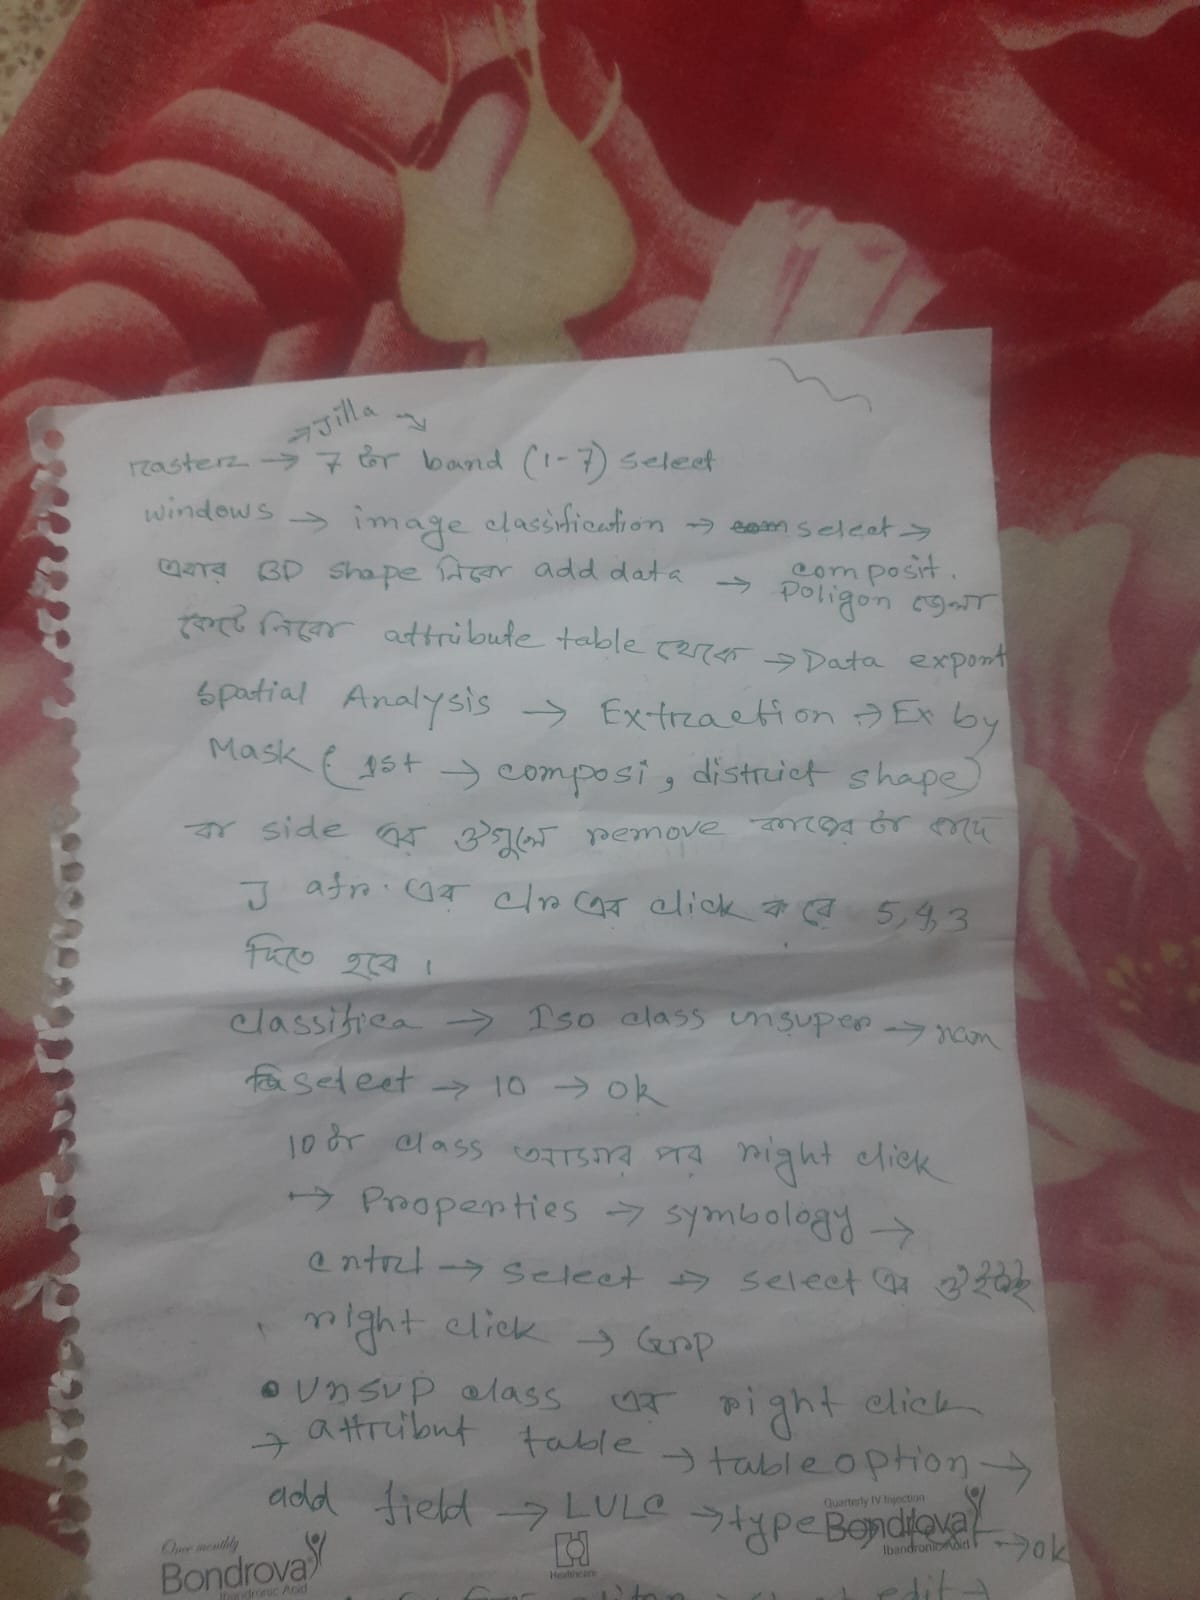 → Jilla →
raster → 7 টার band (1-7) select
windows → image classification → select →
composit.
এবার BD shape নিবো add data → Poligon জেলা
কেটে নিবো attribute table থেকে → Data export
Spatial Analysis → Extraction → Ex by
Mask (1st → composi, district shape)
বা side এর ওগুলো remove কাজের টা বাদে
J afr. এর clr এর click করে 5,4,3
দিতে হবে।
classifica → Iso class unsuper → ran
select → 10 → ok
10 টা class আসার পর right click
→ Properties → symbology →
cntrl → select → select এর
right click → Grp
• Unsup class এর right click
→ attribut table → table option →
add field → LULC → type → ok
Quarterly IV Injection
Bondrova
Ibandronic Acid
Once monthly
Bondrova
Ibandronic Acid
Healthcare
edit →